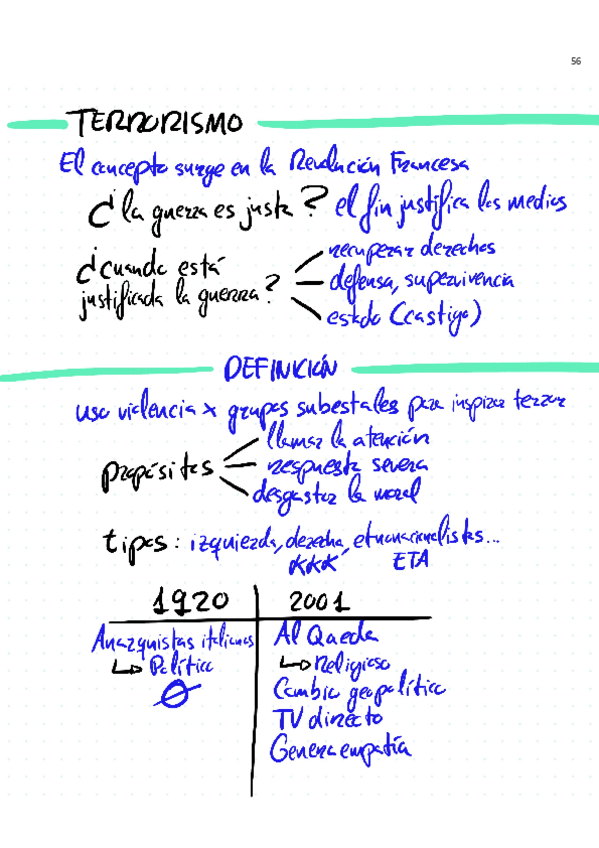 56
TERRORISMO
El concepto surge en la Revolución Francesa
¿la guerra es justa? el fin justifica los medios
¿cuando está
justificada la guerra?
recuperar derechos
defensa, supervivencia
estado (castigo)
DEFINICIÓN
uso violencia x grupos subestales para inspirar terror
propósitos
llamar la atención
respuesta severa
desgastar la moral
tipos: izquierda, derecha, etnonacionalistas...
KKK ETA
1920 2001
Anarquistas italianos
↳ Político
Ø
Al Qaeda
↳ Religioso
Cambio geopolítico
TV directo
Genera empatía